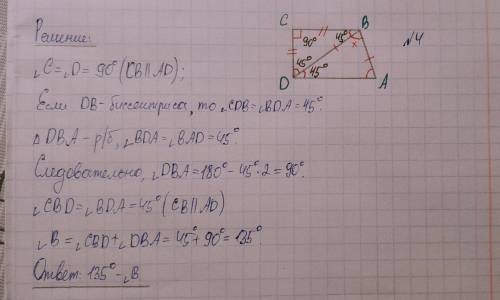 C B №4
90° 45° x
45° 45°
D A
Решение:
∠C=∠D=90° (CB∥AD);
Если DB-биссектриса, то ∠CDB=∠BDA=45°.
∆ DBA-р/б, ∠BDA=∠BAD=45°.
Следовательно, ∠DBA=180°-45°·2=90°.
∠CBD=∠BDA=45° (CB∥AD)
∠B=∠CBD+∠DBA=45°+90°=135°.
Ответ: 135°-∠B